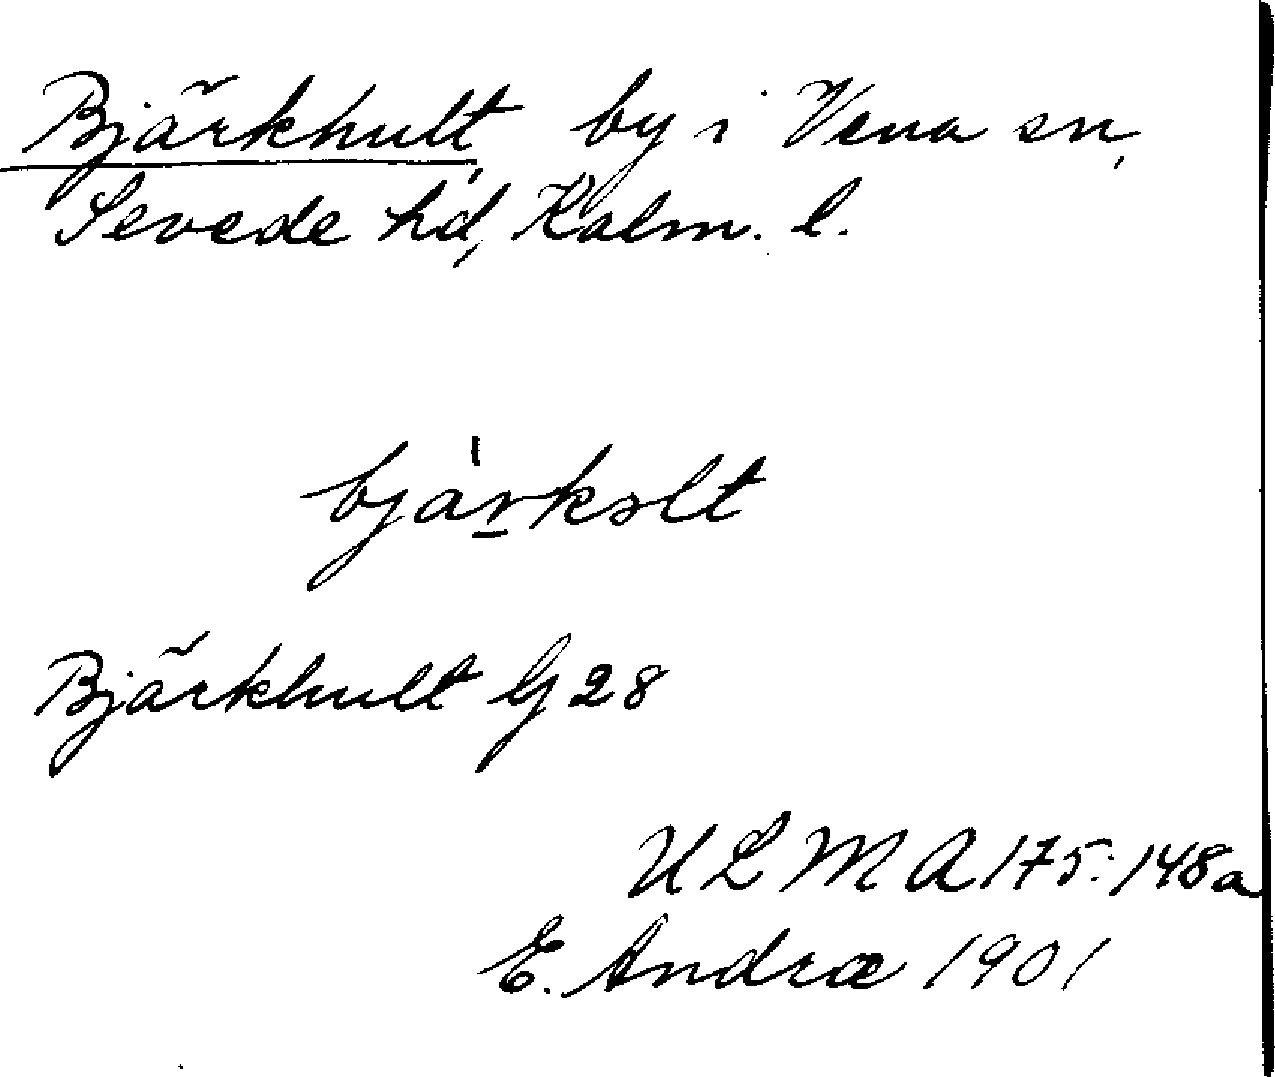 Bjärkhult, by i Vena sn,
Sevede hd, Kalm. l.
bjärkolt
Bjärkhult G 28
ULMA 175:148a
E. Andræ 1901